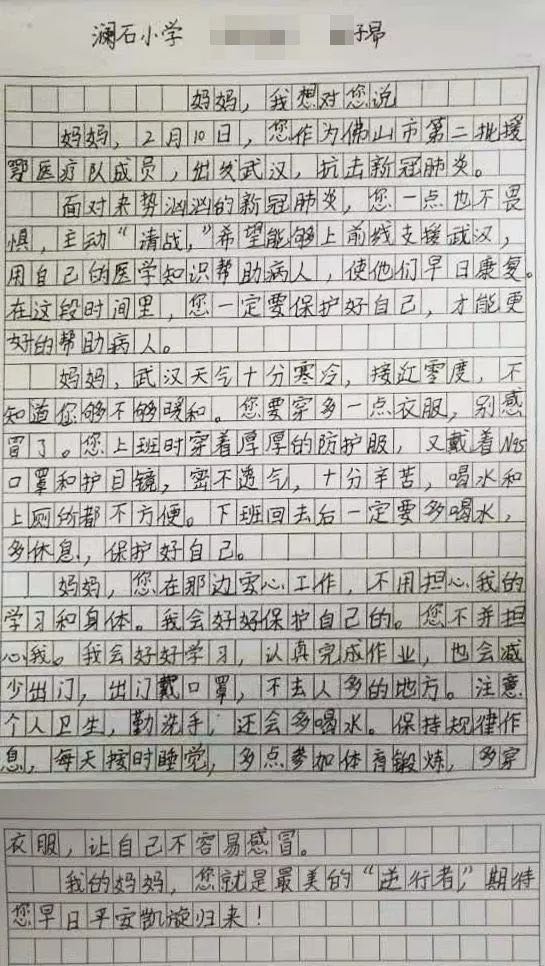 澜石小学 子昂
妈妈，我想对您说
妈妈，2月10日，您作为佛山市第二批援
鄂医疗队成员，出发武汉，抗击新冠肺炎。
面对来势汹汹的新冠肺炎，您一点也不畏
惧，主动“请战，”希望能够上前线支援武汉，
用自己的医学知识帮助病人，使他们早日康复。
在这段时间里，您一定要保护好自己，才能更
好的帮助病人。
妈妈，武汉天气十分寒冷，接近零度，不
知道您够不够暖和。您要穿多一点衣服，别感
冒了。您上班时穿着厚厚的防护服，又戴着N95
口罩和护目镜，密不透气，十分辛苦，喝水和
上厕所都不方便。下班回去后一定要多喝水，
多休息，保护好自己。
妈妈，您在那边安心工作，不用担心我的
学习和身体。我会好好保护自己的。您不并担
心我。我会好好学习，认真完成作业，也会减
少出门，出门戴口罩，不去人多的地方。注意
个人卫生，勤洗手；还会多喝水。保持规律作
息，每天按时睡觉，多点参加体育锻炼，多穿
衣服，让自己不容易感冒。
我的妈妈，您就是最美的“逆行者，”期待
您早日平安凯旋归来！